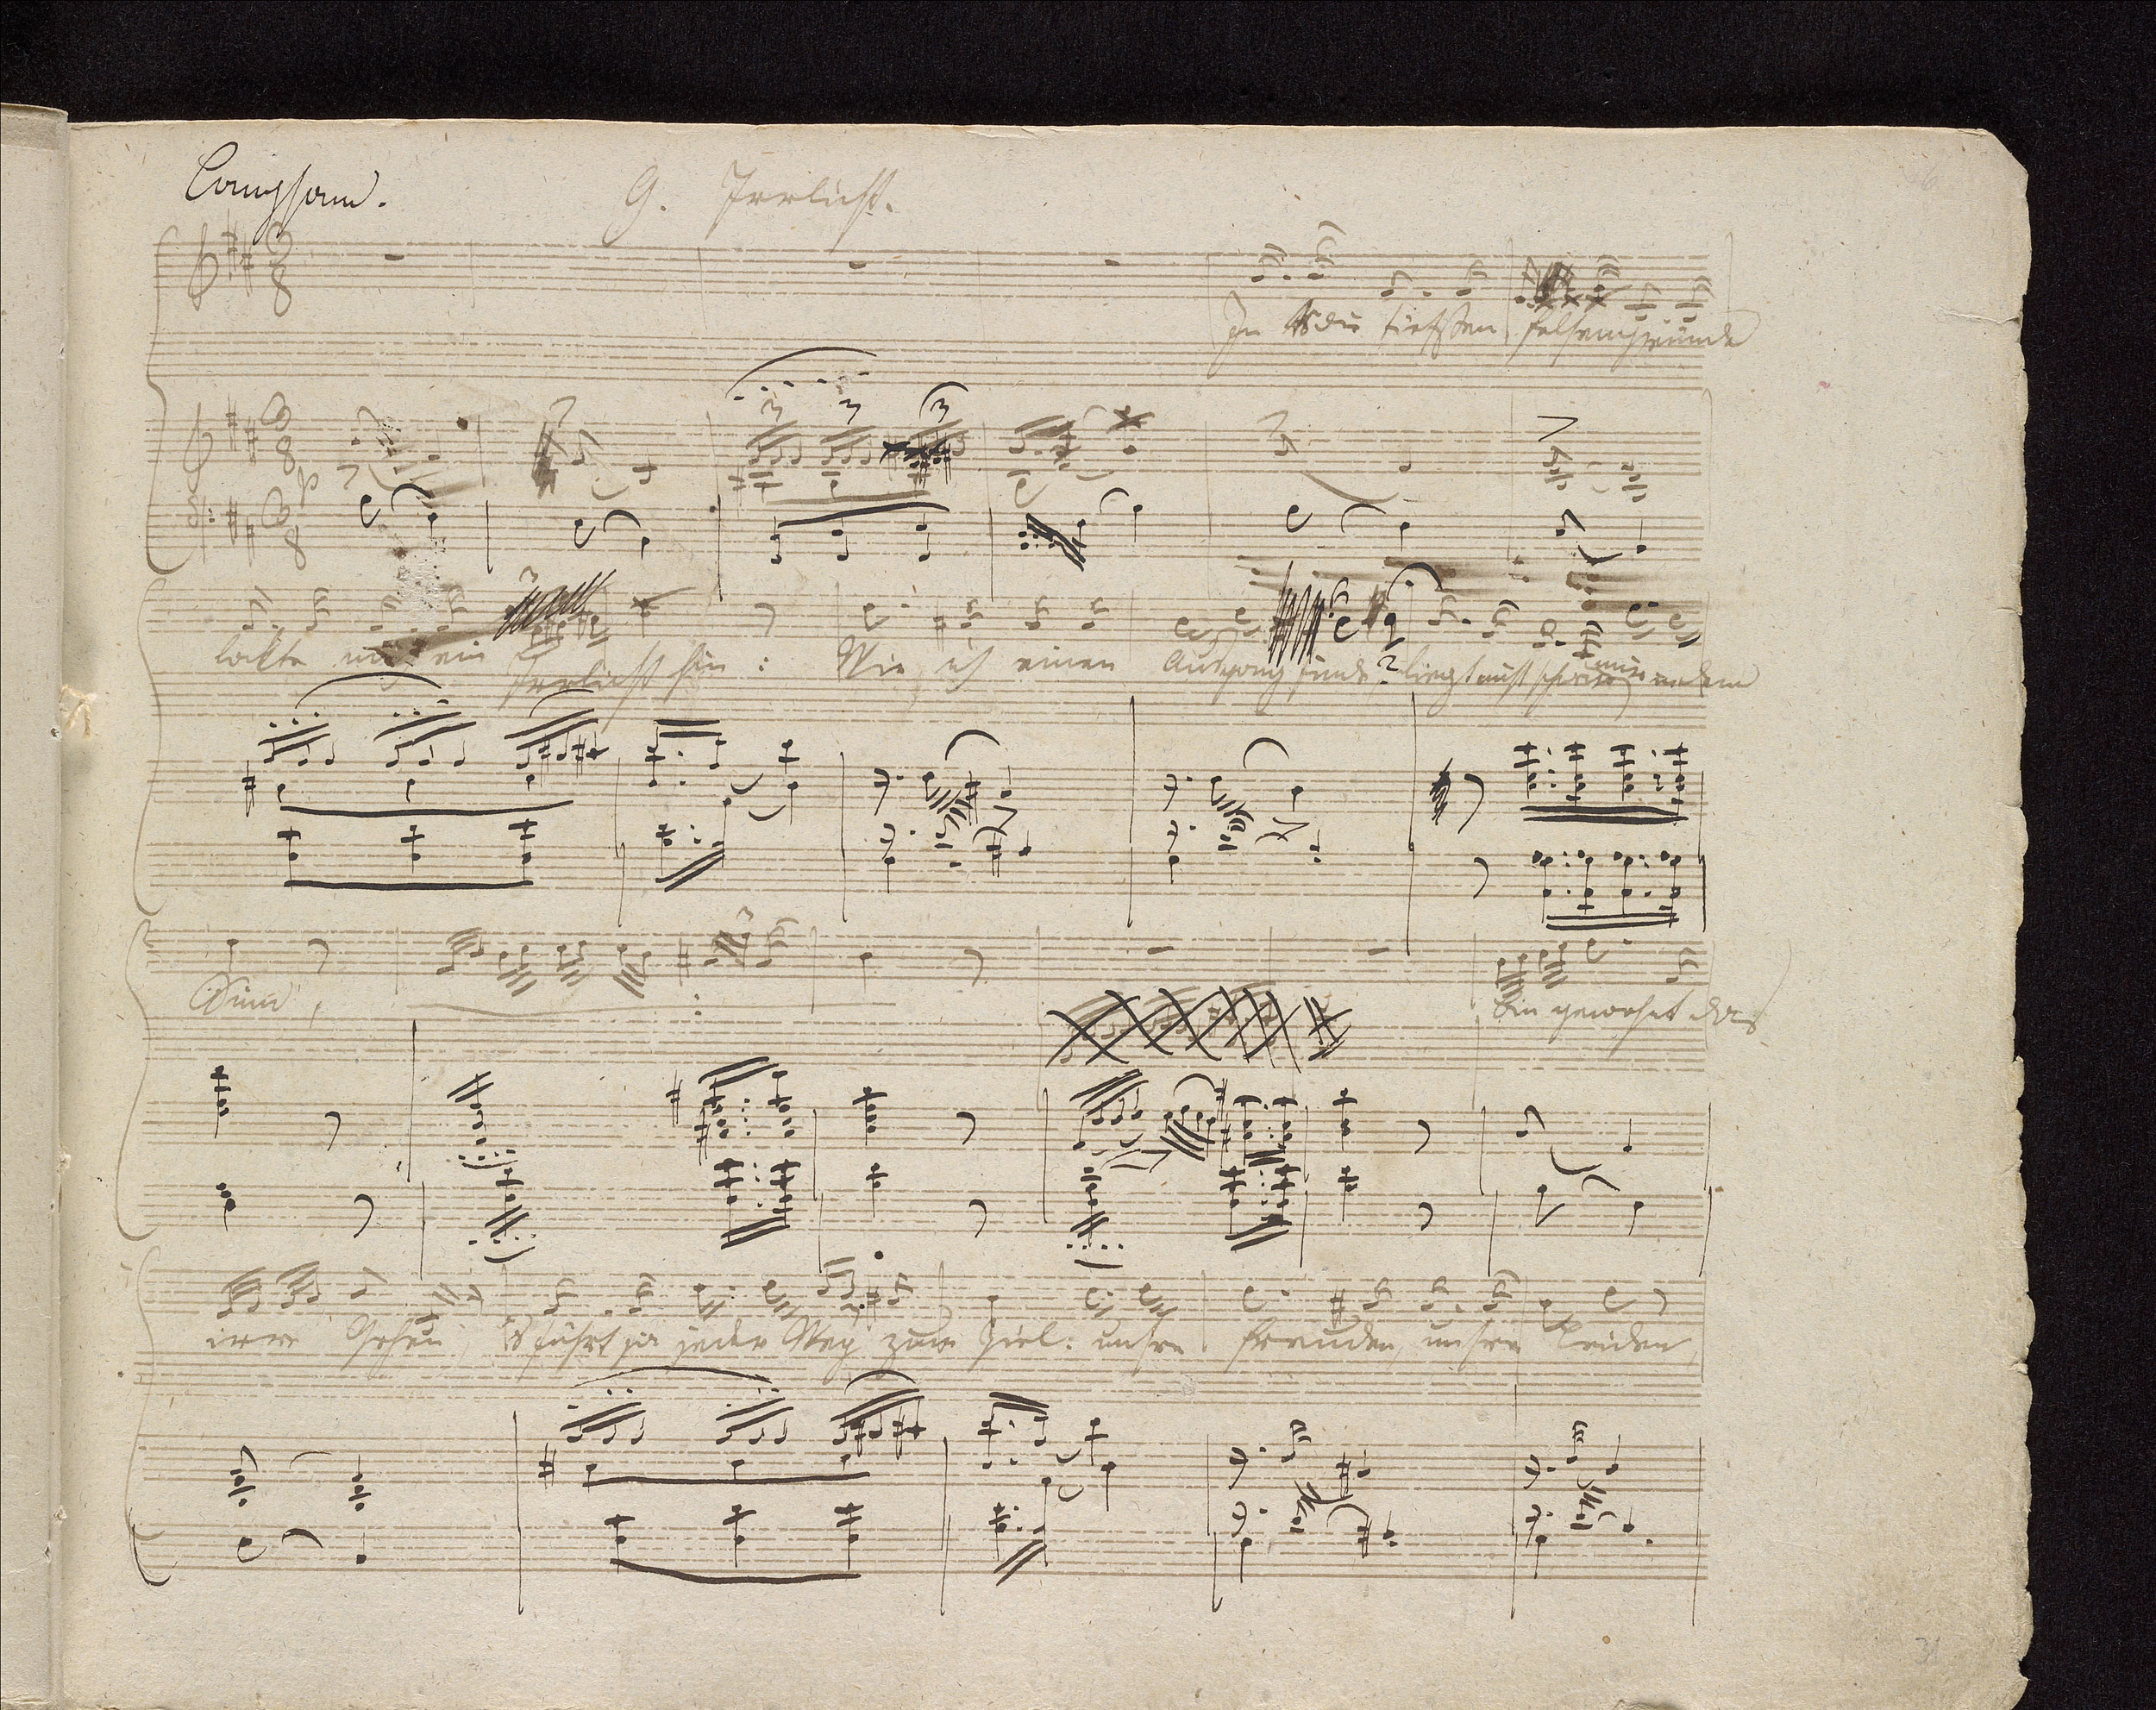 Langsam. 9. Irrlicht.
In die tiefsten Felsengründe
lockte mich ein Irrlicht hin: Wie ich einen Ausgang finde? liegt nicht schwer mir in dem
Sinn,
bin gewohnt das
irre Gehen, 's führt ja jeder Weg zum Ziel: unsre Freuden, unsre Leiden,
31